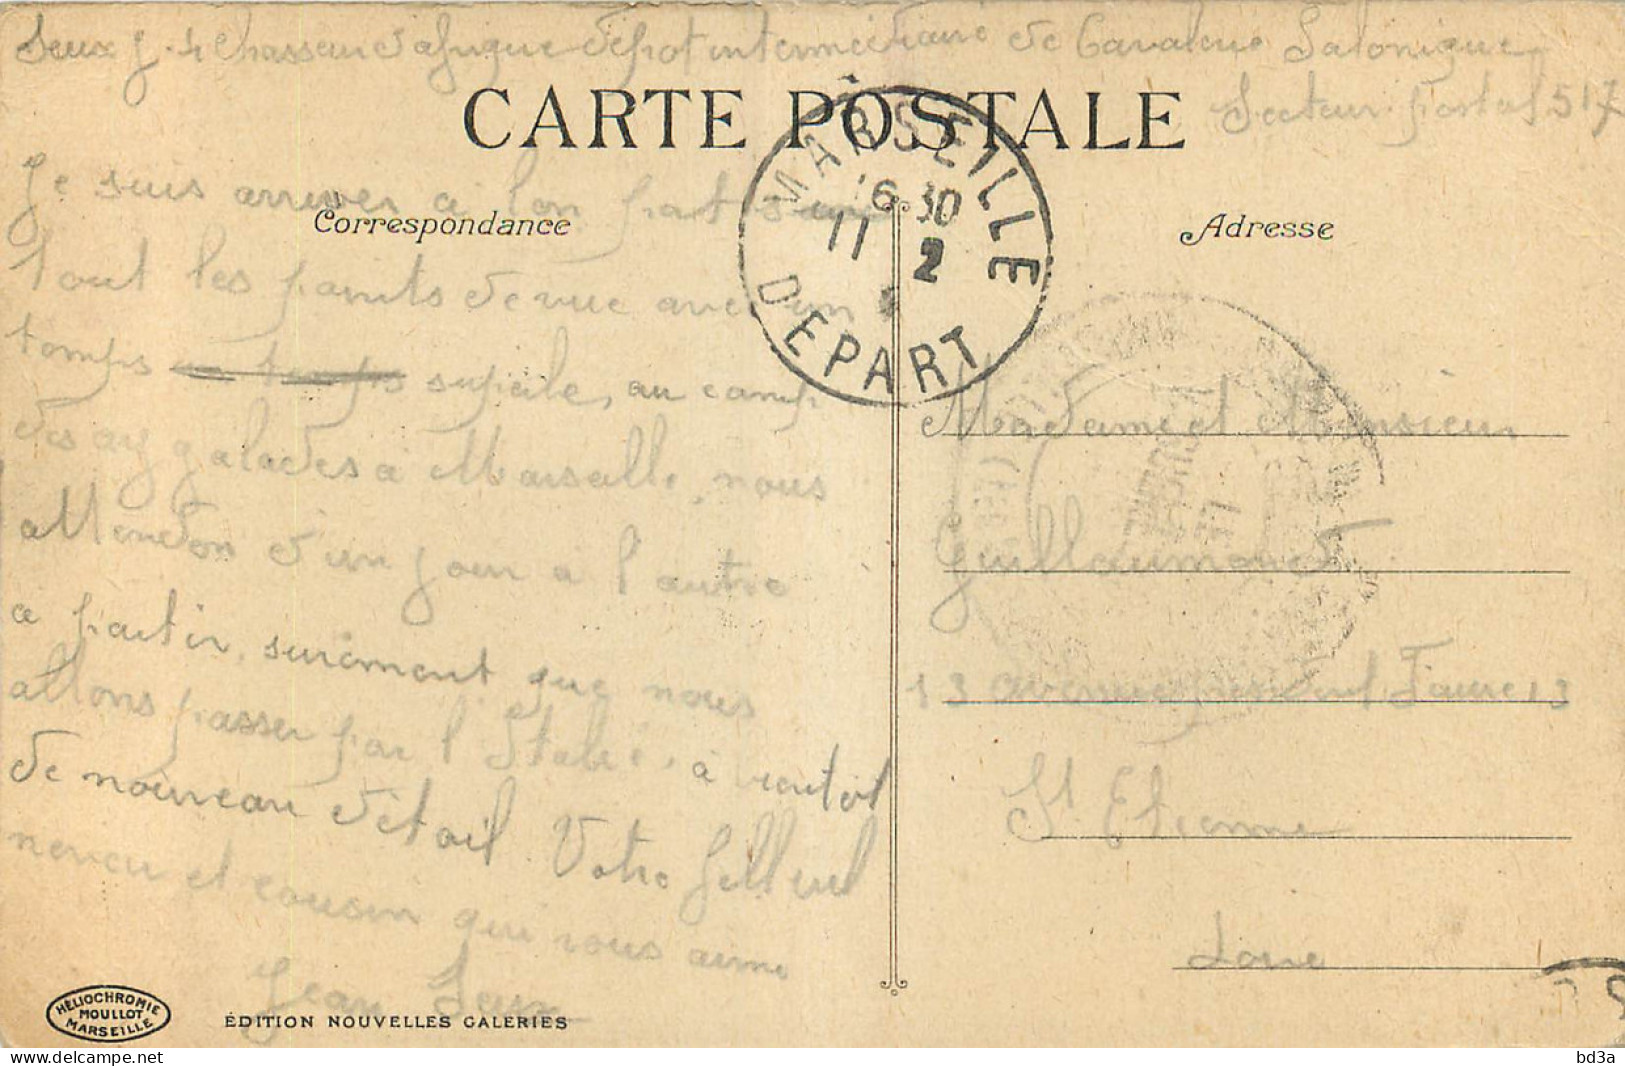 Seux J. 4 Chasseur d'afrique dépot intermédiaire de Cavalerie Salonique
Secteur postal 517
CARTE POSTALE
MARSEILLE
16 30
11 2
DEPART
Correspondance
Adresse
Je suis arriver a bon port sur
tout les points de vue avec un
temps superbe, au camp
des aygalades a Marseille, nous
attendon d'un jour a l'autre
a partir, surement que nous
allons passer par l'Italie, à bientot
de nouveau détail Votre filleul
neveu et cousin qui vous aime
Jean Seux
Madame et Monsieur
Guillaumond
13 avenue président Faure 13
St Etienne
Loire
HÉLIOCHROMIE
MOULLOT
MARSEILLE
ÉDITION NOUVELLES GALERIES
bd3a